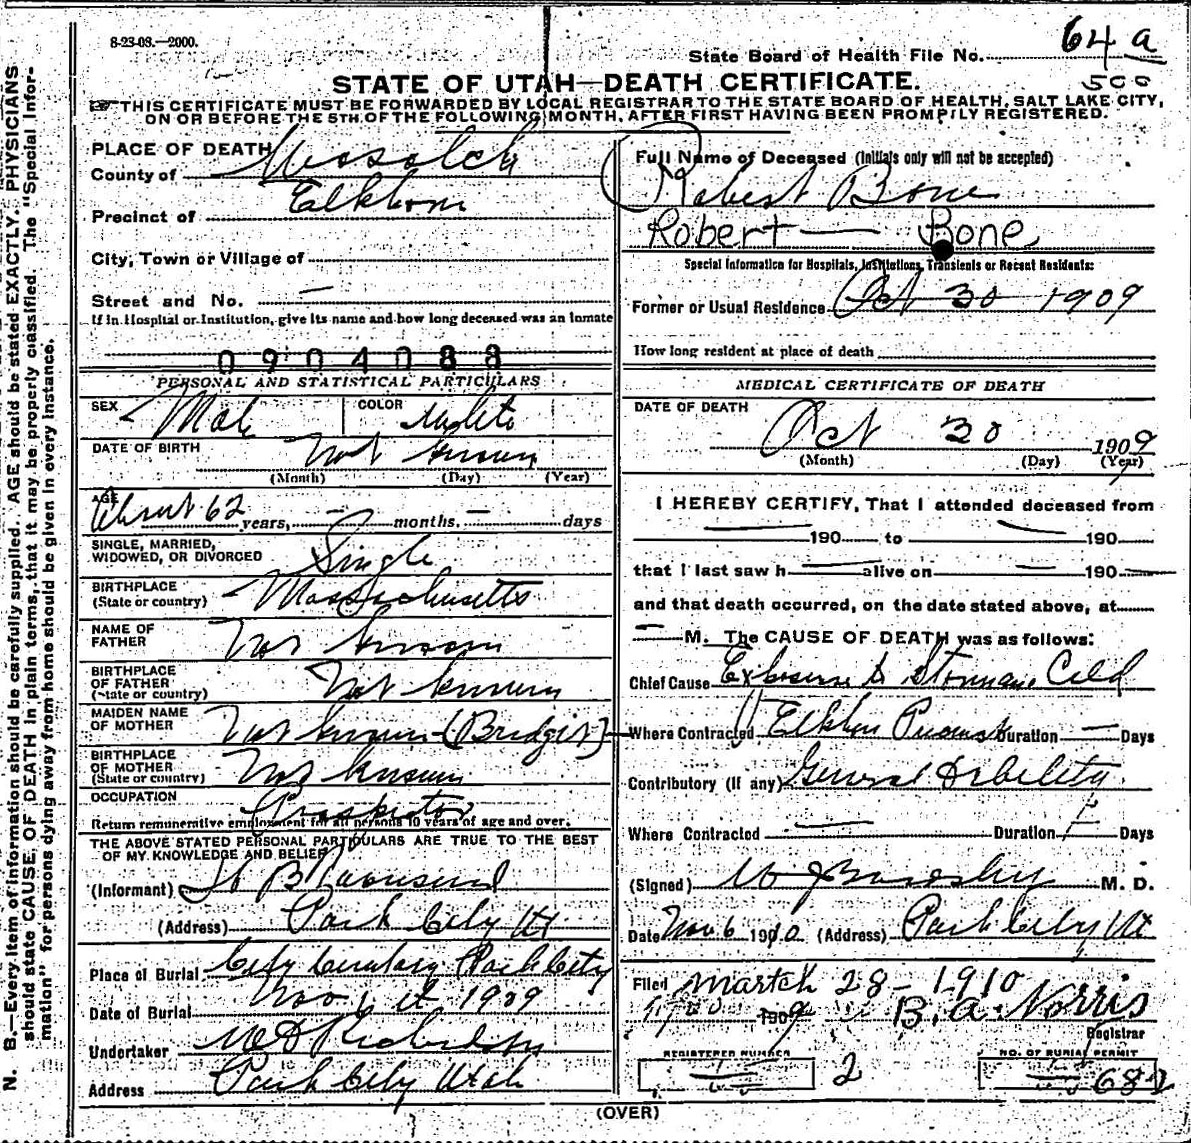 8-23-08.—2000.
State Board of Health File No. 64 a
500
STATE OF UTAH—DEATH CERTIFICATE.
THIS CERTIFICATE MUST BE FORWARDED BY LOCAL REGISTRAR TO THE STATE BOARD OF HEALTH, SALT LAKE CITY,
ON OR BEFORE THE 5TH OF THE FOLLOWING MONTH, AFTER FIRST HAVING BEEN PROMPTLY REGISTERED.
N. B.—Every item of information should be carefully supplied. AGE should be stated EXACTLY. PHYSICIANS
should state CAUSE OF DEATH in plain terms, that it may be properly classified. The "Special Infor-
mation" for persons dying away from home should be given in every instance.
PLACE OF DEATH
County of Wasatch
Precinct of Elkhorn
City, Town or Village of
Street and No. —
If in Hospital or Institution, give its name and how long deceased was an inmate
0904088
PERSONAL AND STATISTICAL PARTICULARS
SEX Mal
COLOR
DATE OF BIRTH Not known
(Month) (Day) (Year)
AGE About 62 years, — months, — days
SINGLE, MARRIED,
WIDOWED, OR DIVORCED Single
BIRTHPLACE
(State or country) Massachusetts
NAME OF
FATHER Not known
BIRTHPLACE
OF FATHER
(State or country) Not known
MAIDEN NAME
OF MOTHER Not known (Bridget)
BIRTHPLACE
OF MOTHER
(State or country) Not known
OCCUPATION Prospector
Return remunerative employment for all persons 10 years of age and over.
THE ABOVE STATED PERSONAL PARTICULARS ARE TRUE TO THE BEST
OF MY KNOWLEDGE AND BELIEF
(Informant) B Townsend
(Address) Park City Ut
Place of Burial City Cemetery Park City
Date of Burial Nov 1909
Undertaker Richardson
Address Park City Utah
Full Name of Deceased (Initials only will not be accepted)
Robert Bone
Robert — Bone
Special Information for Hospitals, Institutions, Transients or Recent Residents:
Former or Usual Residence Oct 30 1909
How long resident at place of death
MEDICAL CERTIFICATE OF DEATH
DATE OF DEATH
Oct 30 1909
(Month) (Day) (Year)
I HEREBY CERTIFY, That I attended deceased from
— 190 to — 190
that I last saw h — alive on — 190 —
and that death occurred, on the date stated above, at
— M. The CAUSE OF DEATH was as follows:
Chief Cause Exposure to Storm and Cold
Where Contracted Duration — Days
Contributory (if any) General Debility
Where Contracted — Duration — Days
(Signed) M. D.
Date Nov 6 1910 (Address) Park City Ut
Filed March 28 - 1910
1909 B. A. Norris
Registrar
REGISTERED NUMBER
2
NO. OF BURIAL PERMIT
682
(OVER)